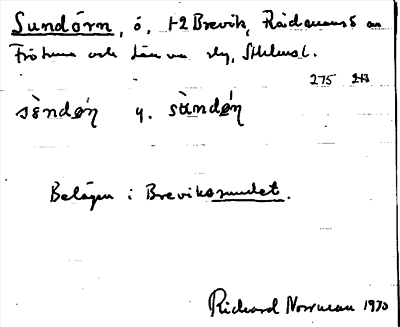 Sundörn, ö, t 2 Brevik, Rådmansö sn
Frötuna och Länna slg, Sthlms l.
275 243
sèndǿn̜ y. sàndǿn̜
Belägen i Breviksundet.
Richard Norrman 1930